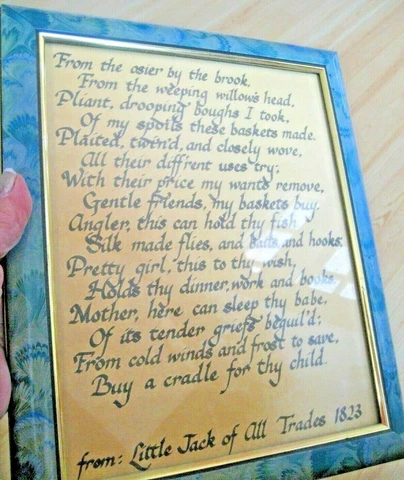 From the osier by the brook,
From the weeping willow's head,
Pliant, drooping boughs I took,
Of my spoils these baskets made.
Plaited, twin'd, and closely wove,
All their diff'rent uses try;
With their price my wants remove,
Gentle friends, my baskets buy.
Angler, this can hold thy fish
Silk made flies, and baits and hooks;
Pretty girl, this to thy wish,
Holds thy dinner, work and books.
Mother, here can sleep thy babe,
Of its tender griefs beguil'd;
From cold winds and frost to save,
Buy a cradle for thy child.
from: Little Jack of All Trades 1823